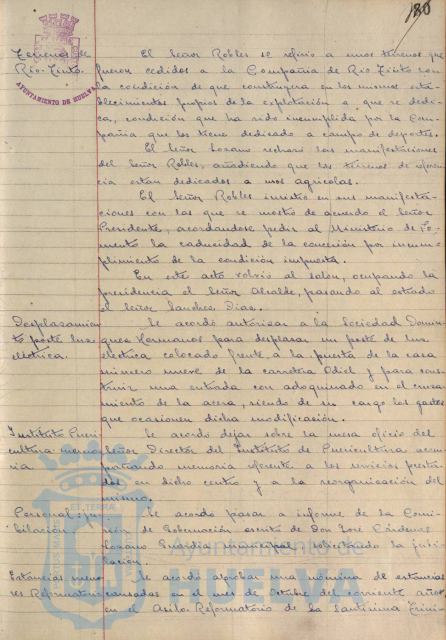 180
Terrenos de
Rio-Tinto.
AYUNTAMIENTO DE HUELVA
El Señor Robles se refirio a unos terrenos que
fueron cedidos a la Compañia de Rio Tinto con
la condición de que construyera en los mismos esta-
blecimientos propios de la explotación a que se dedi-
ca, condición que ha sido incumplida por la Com-
pañia que los tiene dedicado a campo de deportes.
El Señor Lozano rechazó las manifestaciones
del Señor Robles, añadiendo que los terrenos de referen-
cia estan dedicados a usos agricolas.
El Señor Robles insistio en sus manifesta-
ciones con las que se mostro de acuerdo el Señor
Presidente, acordandose pedir al Ministerio de Fo-
mento la caducidad de la concesión por incum-
plimiento de la condición impuesta.
En este acto volvio al salon, ocupando la
presidencia el Señor Alcalde, pasando al estrado
el Señor Sanchez Dias.
Desplazamien-
to poste luz
electrica.
Se acordó autorizar a la Sociedad Domin-
guez Hermanos para desplazar un poste de luz
electrica colocado frente a la puerta de la casa
número nueve de la carretera Odiel y para cons-
truir una entrada con adoquinado en el
de la acera, siendo de su cargo los gastos
que ocasionen dicha modificación.
Instituto Pueri-
cultura memo-
ria
Se acordo dejar sobre la mesa oficio del
Señor Director del Instituto de Puericultura acom-
pañando memoria referente a los servicios presta-
dos en dicho centro y a la reorganización del
mismo.
Personal: ju-
bilación.
Se acordo pasar a informe de la Comi-
sión de Gobernación escrito de Don José Cárdenas
Lozano Guardia municipal solicitando la jubi-
lación.
Estancias meno-
res Reformatorio
Se acordo aprobar una nómina de estancias
causadas en el mes de Octubre del corriente año,
en el Asilo Reformatorio de la Santisima Trini-
Ayuntamiento de
HUELVA